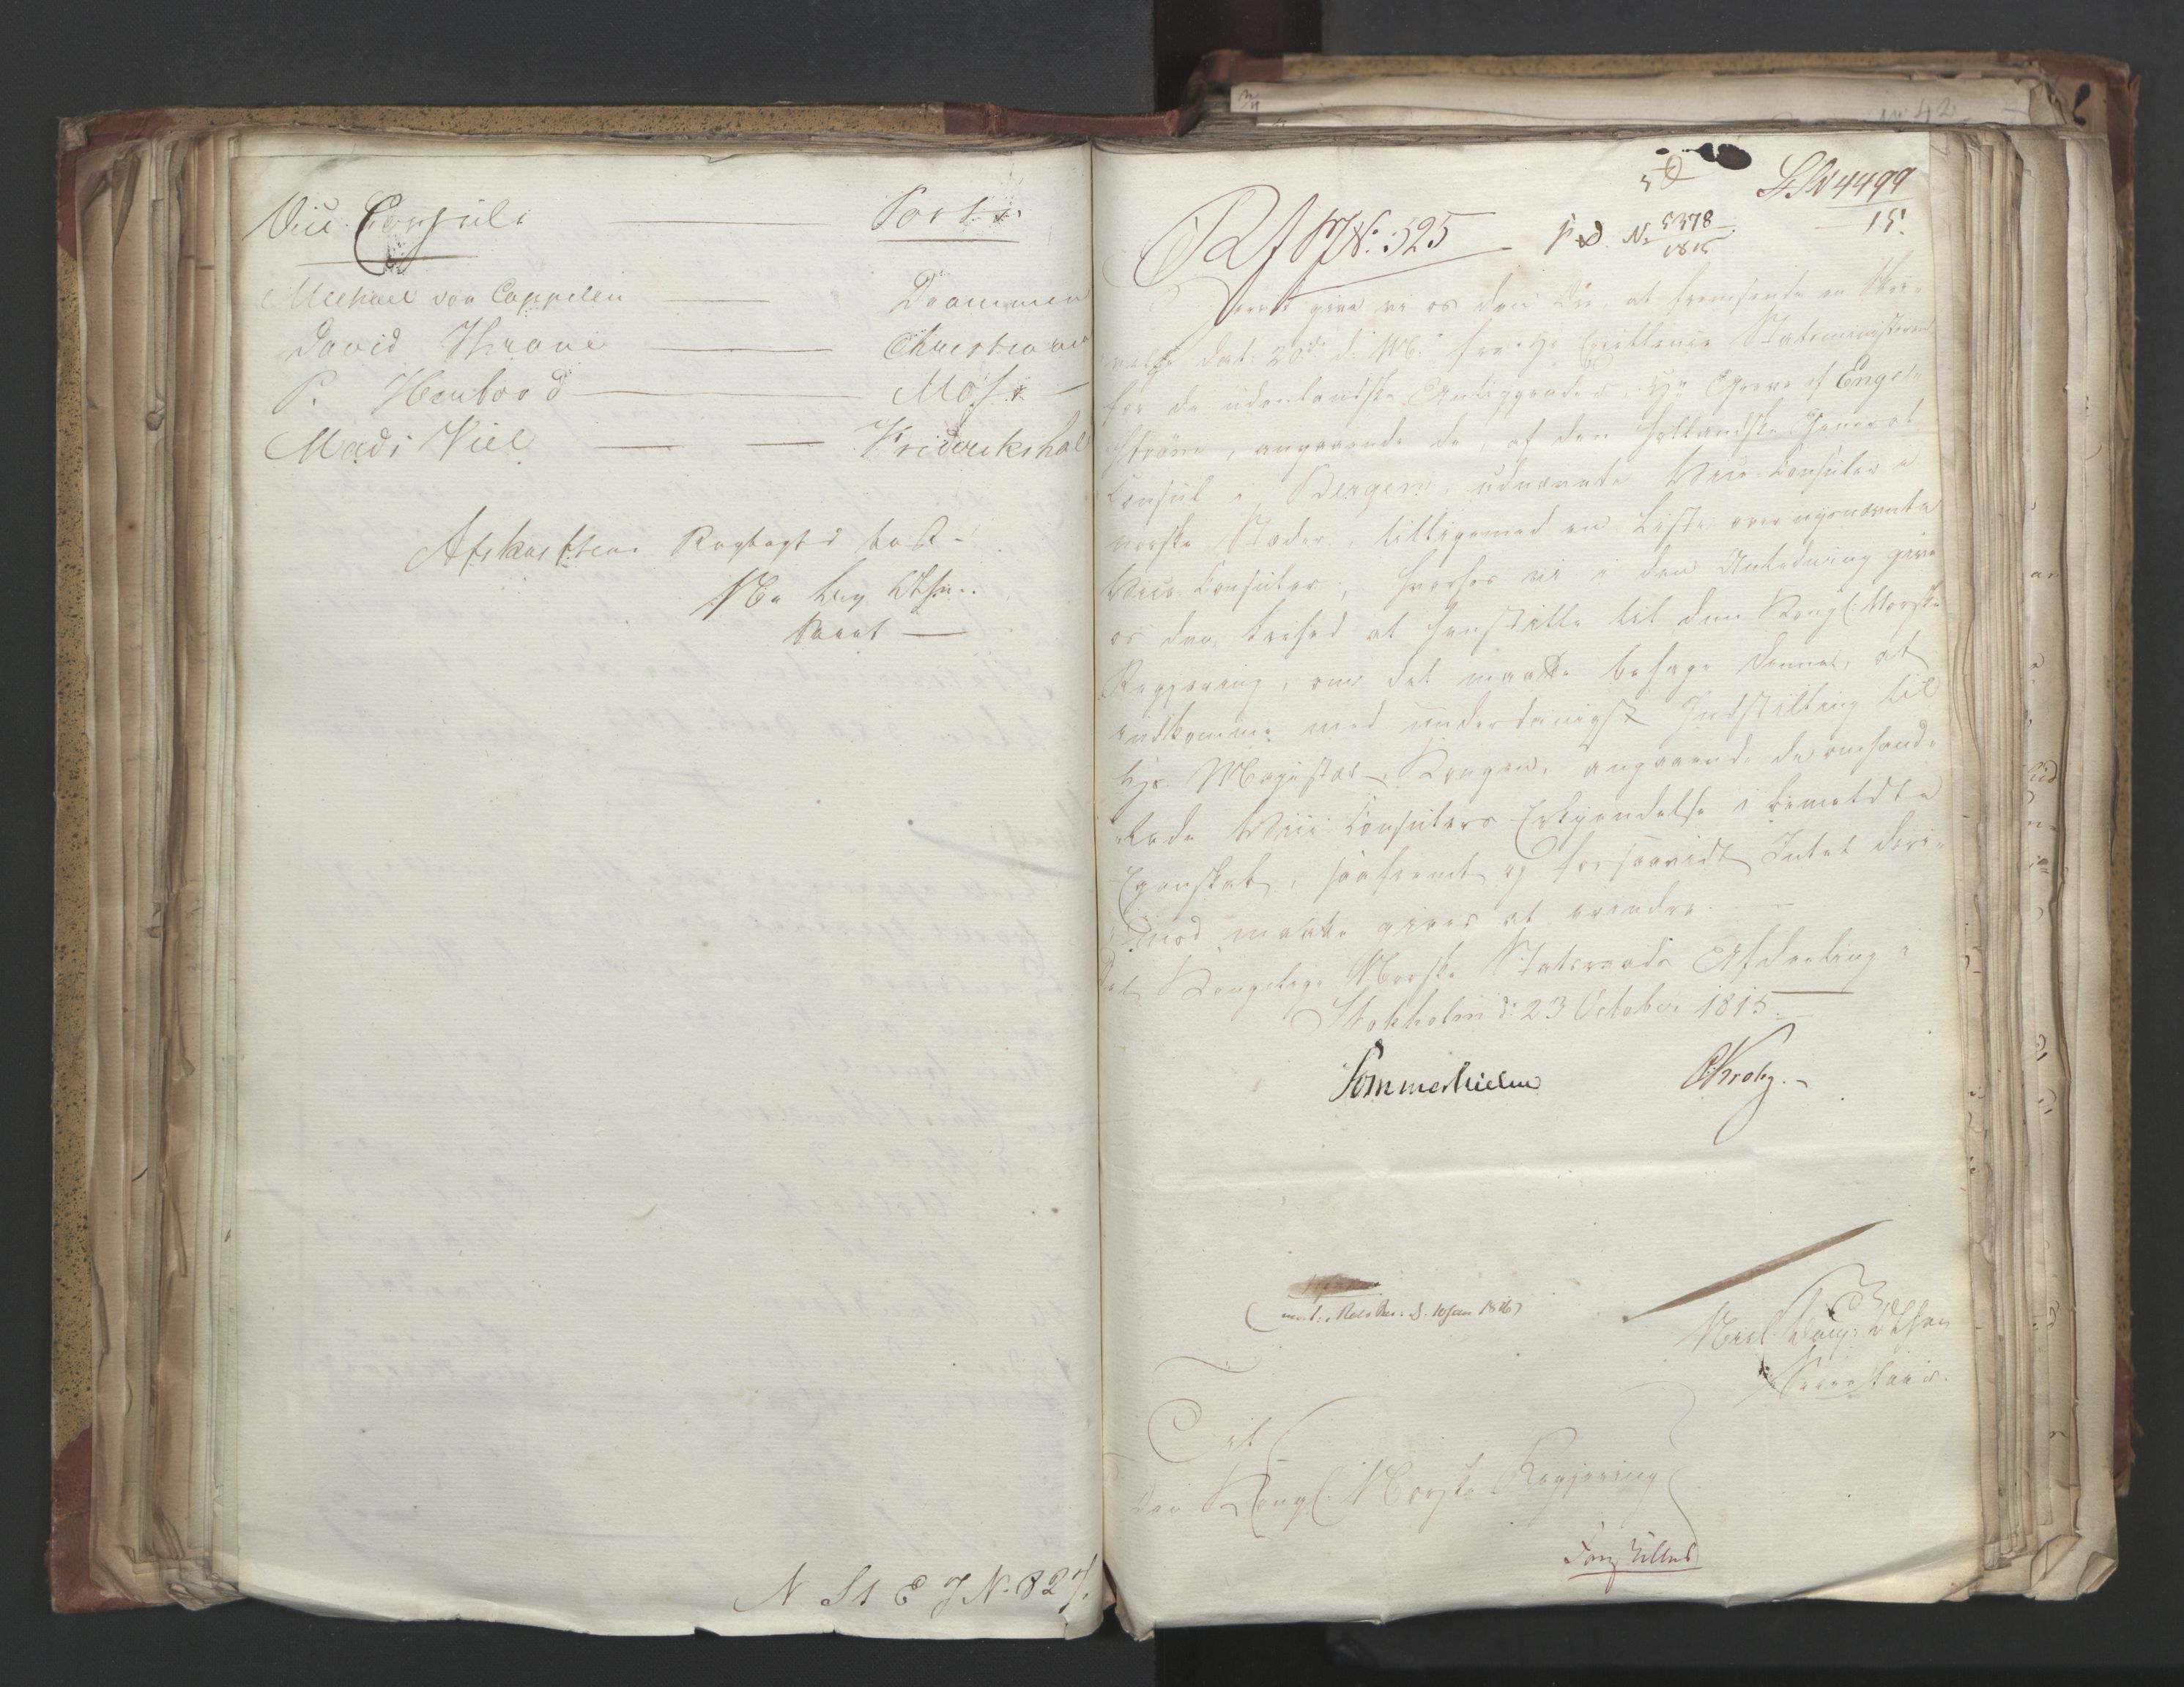 Vice Consuls Ports
Michael von Cappelen Drammen
David Thrane Christiania
P. Herbord Moss
Mads Wiel Friderikshal
Afskriftens Rigtighed
N St E J N. 827.
L N 4499
15.
No 5378
1815
N: 525
herved give vi os den Ære at fremsende en Skri-
velse dat: 20de d: M: fra Hs Excellence Statsministeren
for de udenlandske Anliggender, Hr Greve af Enge-
ström, angaaende de, af den hollandske General
Consul i Bergen, udnævnte Vice Consuler i
norske Stæder, tilligemed en Liste over nysnævnte
Vice Consuler, hvorhos vi i den Anledning give
os den Frihed at henstille til den Kongl: Norske
Regjering, om det maatte behage denne, at
indkomme med underdanigst Indstilling til
Hs Majestæt Kongen, angaaende de omhand-
lede Vice Consulers Erkjendelse i bemeldte
Egenskab, saafremt og forsaavidt Intet deri-
mod maatte gives at erindre.
Det Kongelige Norske Statsraads Afdeling i
Stokholm d: 23 October 1815.
Sommerhielm Krog.
10 Jan 1816)
Til
Den Kongl: Norske Regjering